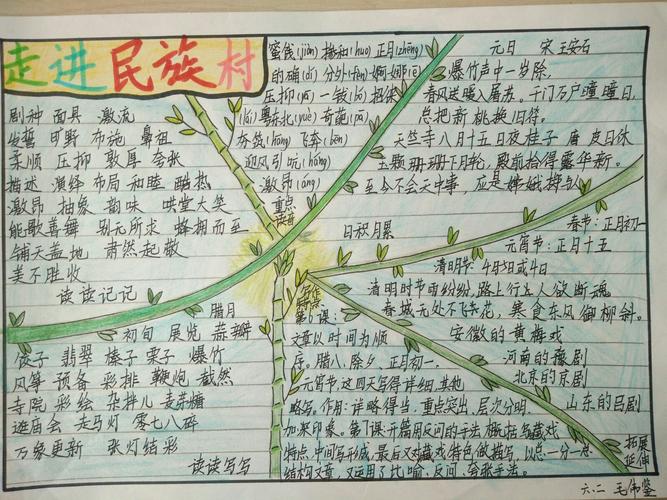 走进民族村
剧种 面具 激流
发誓 旷野 布施 鼻祖
柔顺 压抑 敦厚 夸张
描述 演绎 布局 和睦 酷热
激昂 抽象 韵味 哄堂大笑
能歌善舞 别无所求 蜂拥而至
铺天盖地 肃然起敬
美不胜收
读读记记
腊月
初旬 展览 蒜瓣
饺子 翡翠 榛子 栗子 爆竹
风筝 预备 彩排 鞭炮 截然
寺院 彩绘 杂拌儿 麦芽糖
逛庙会 走马灯 零七八碎
万象更新 张灯结彩
读读写写
蜜饯(jiàn) 搀和(huo) 正月(zhēng)
的确(dí) 分外(fèn) 婀娜(ē)
压抑(yì) 一钹(bó) 招徕
(lái) 粤东北(yuè) 奇葩(pā)
夯筑(hāng) 飞奔(bēn)
迎风引吭(háng)
激昂(áng)
重点
读音
元日 宋 王安石
爆竹声中一岁除,
春风送暖入屠苏。千门万户曈曈日,
总把新桃换旧符。
天竺寺八月十五日夜桂子 唐 皮日休
玉颗珊珊下月轮,殿前拾得露华新。
至今不会天中事,应是嫦娥掷与人
日积月累
春节:正月初一
元宵节:正月十五
清明节:4月5日或4日
清明时节雨纷纷,路上行人欲断魂
春城无处不飞花,寒食东风御柳斜。
安徽的黄梅戏
河南的豫剧
北京的京剧
山东的吕剧
拓展
延伸
第6课:
文章以时间为顺
序。腊八、除夕、正月初一、
元宵节,这四天写得详细,其他
略写。作用:详略得当,重点突出、层次分明,
加深印象。第7课:开篇用反问的手法概括写藏戏
特点,中间写形成,最后又对藏戏特色做描写,以总一分一总
结构成文,又运用了比喻、反问、夸张手法。
六.二 毛伟鉴